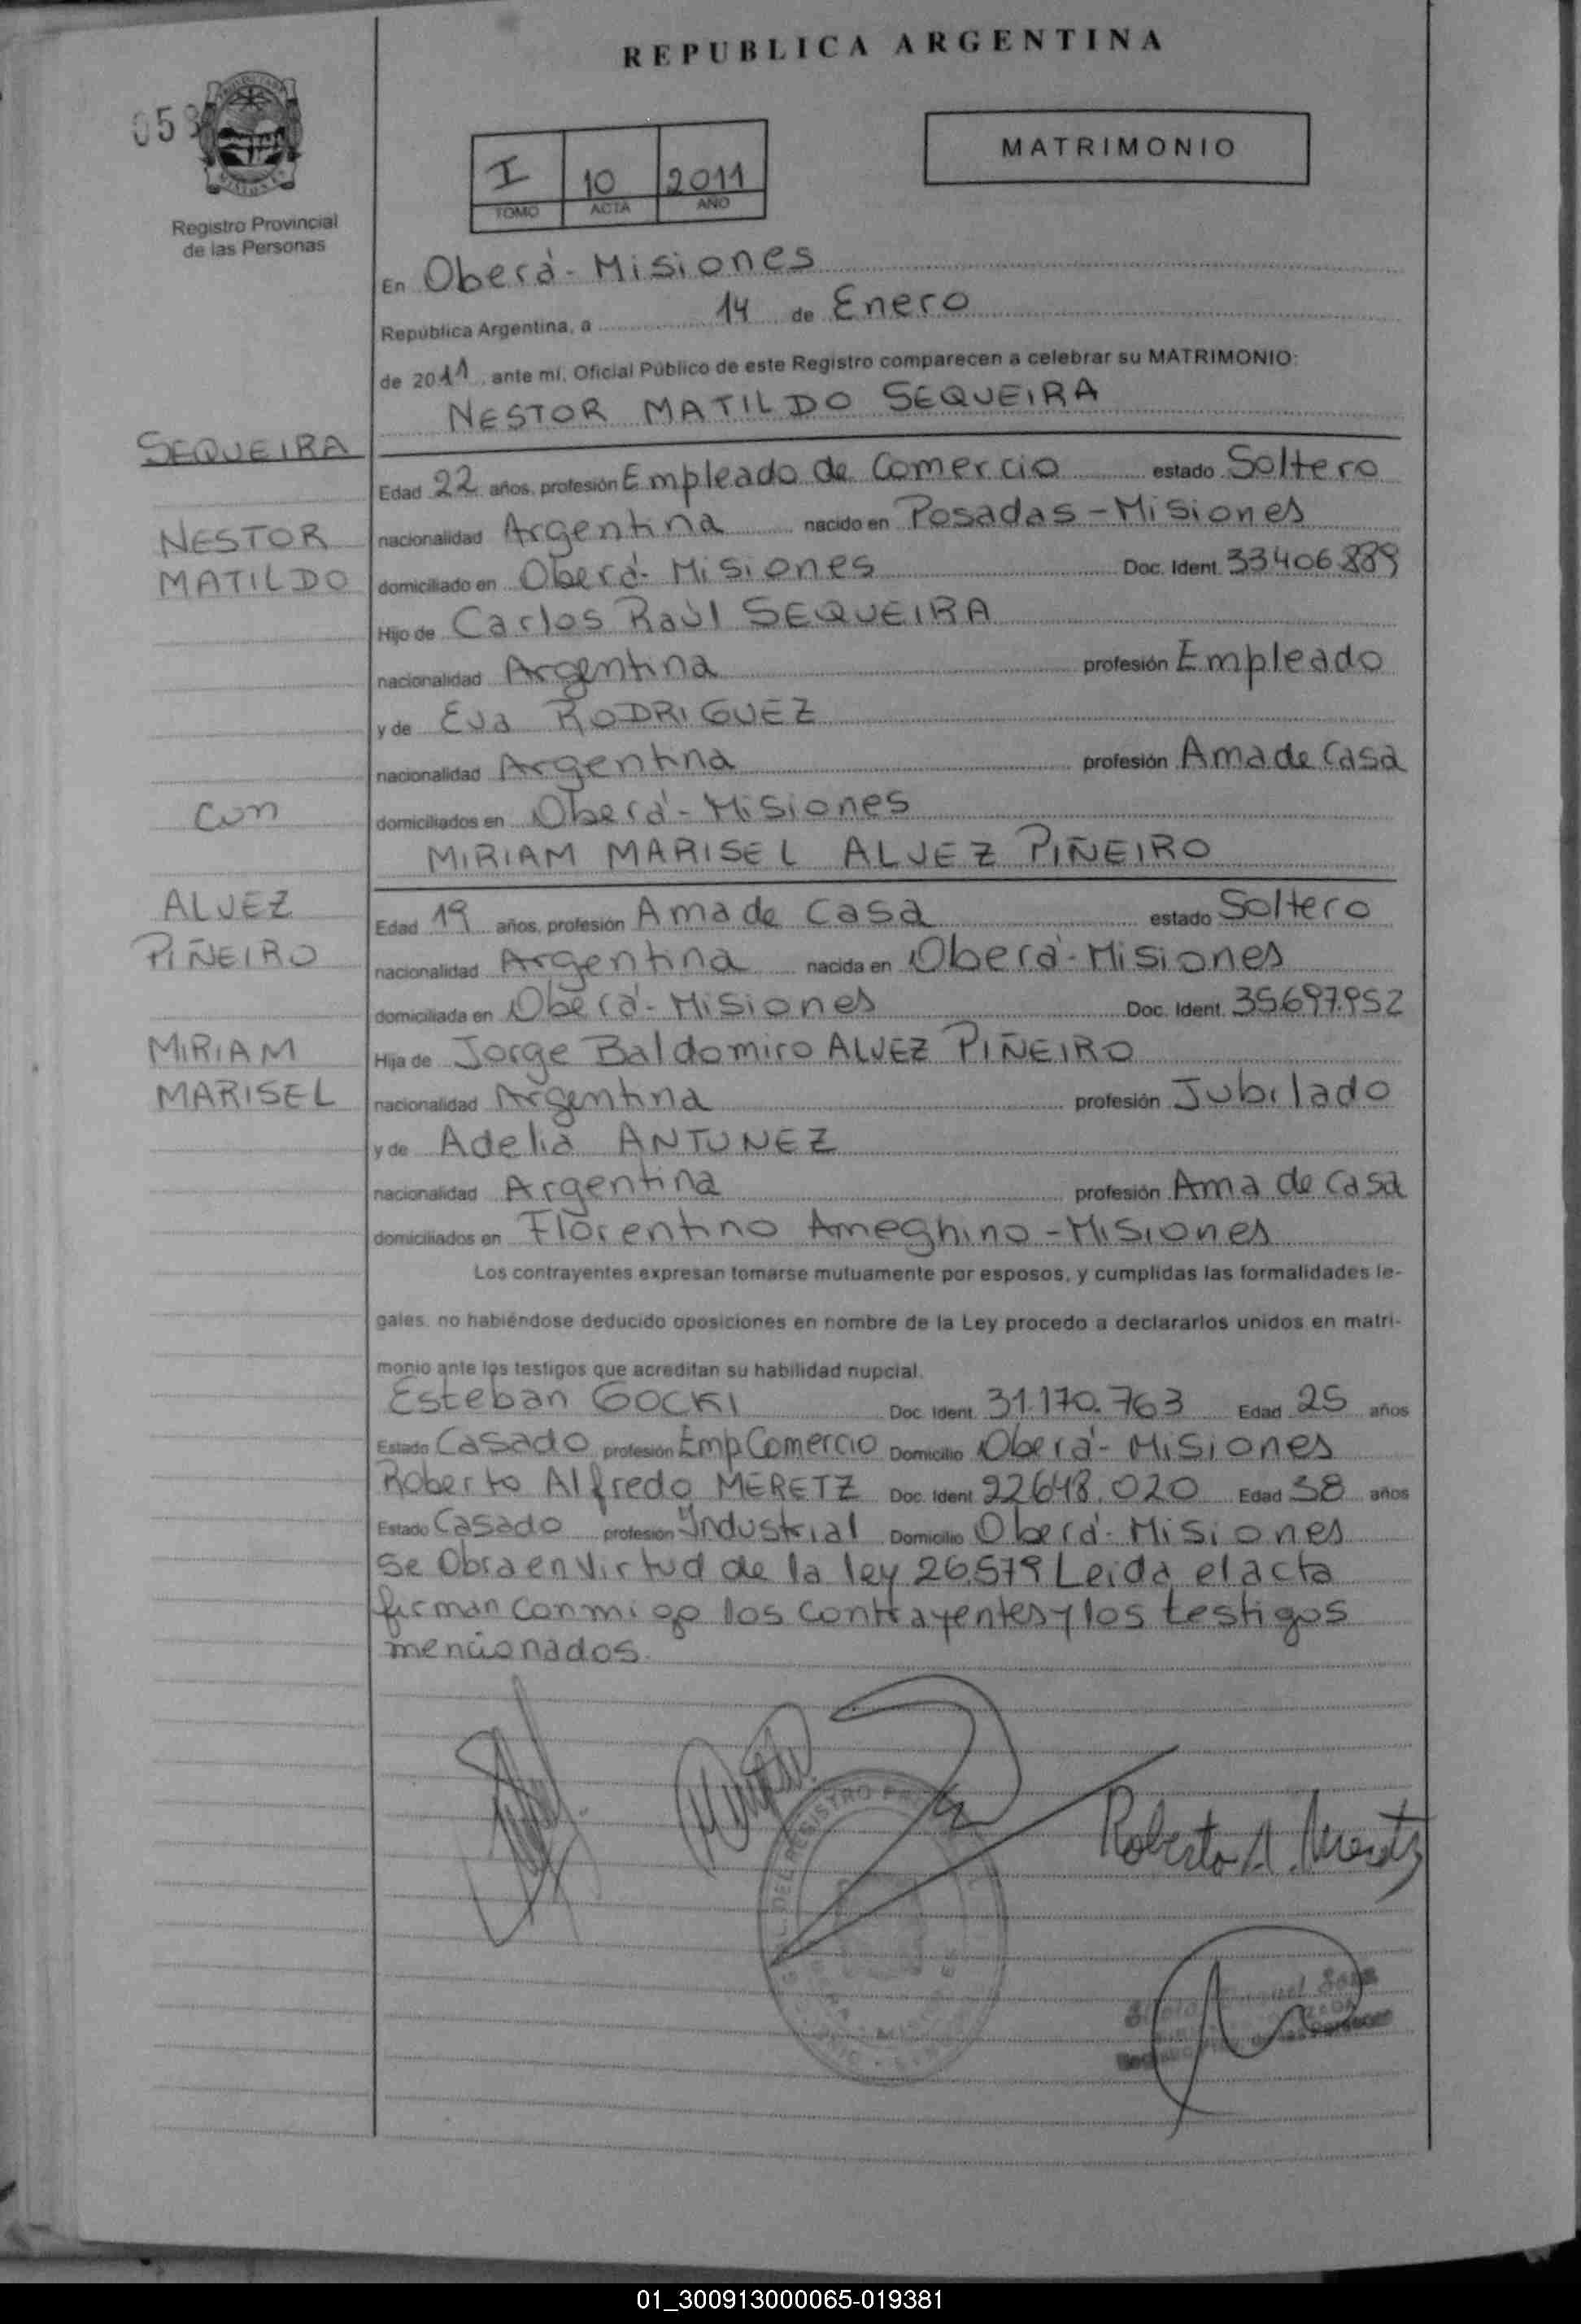 REPUBLICA ARGENTINA
MATRIMONIO
Registro Provincial
de las Personas
I 10 2011
TOMO ACTA AÑO
En Oberá - Misiones
República Argentina, a 14 de Enero
de 2011, ante mí, Oficial Público de este Registro comparecen a celebrar su MATRIMONIO:
NESTOR MATILDO SEQUEIRA
SEQUEIRA
Edad 22 años, profesión Empleado de Comercio estado Soltero
NESTOR
nacionalidad Argentina nacido en Posadas - Misiones
MATILDO
domiciliado en Oberá - Misiones Doc. Ident. 33406.889
Hijo de Carlos Raúl SEQUEIRA
nacionalidad Argentina profesión Empleado
y de Eva RODRIGUEZ
nacionalidad Argentina profesión Ama de Casa
con
domiciliados en Oberá - Misiones
MIRIAM MARISEL ALVEZ PIÑEIRO
ALVEZ
Edad 19 años, profesión Ama de Casa estado Soltero
PIÑEIRO
nacionalidad Argentina nacida en Oberá - Misiones
domiciliada en Oberá - Misiones Doc. Ident. 35.697.952
MIRIAM
Hija de Jorge Baldomiro ALVEZ PIÑEIRO
MARISEL
nacionalidad Argentina profesión Jubilado
y de Adelia ANTUNEZ
nacionalidad Argentina profesión Ama de Casa
domiciliados en Florentino Ameghino - Misiones
Los contrayentes expresan tomarse mutuamente por esposos, y cumplidas las formalidades le-
gales, no habiéndose deducido oposiciones en nombre de la Ley procedo a declararlos unidos en matri-
monio ante los testigos que acreditan su habilidad nupcial.
Esteban GOCKI Doc. Ident. 31.170.763 Edad 25 años
Estado Casado profesión Emp Comercio Domicilio Oberá - Misiones
Roberto Alfredo MERETZ Doc. Ident. 22648.020 Edad 38 años
Estado Casado profesión Industrial Domicilio Oberá - Misiones
Se Obra en Virtud de la ley 26.579 Leida el acta
firman conmigo los contrayentes y los testigos
mencionados.
Roberto A. Meretz
01_300913000065-019381